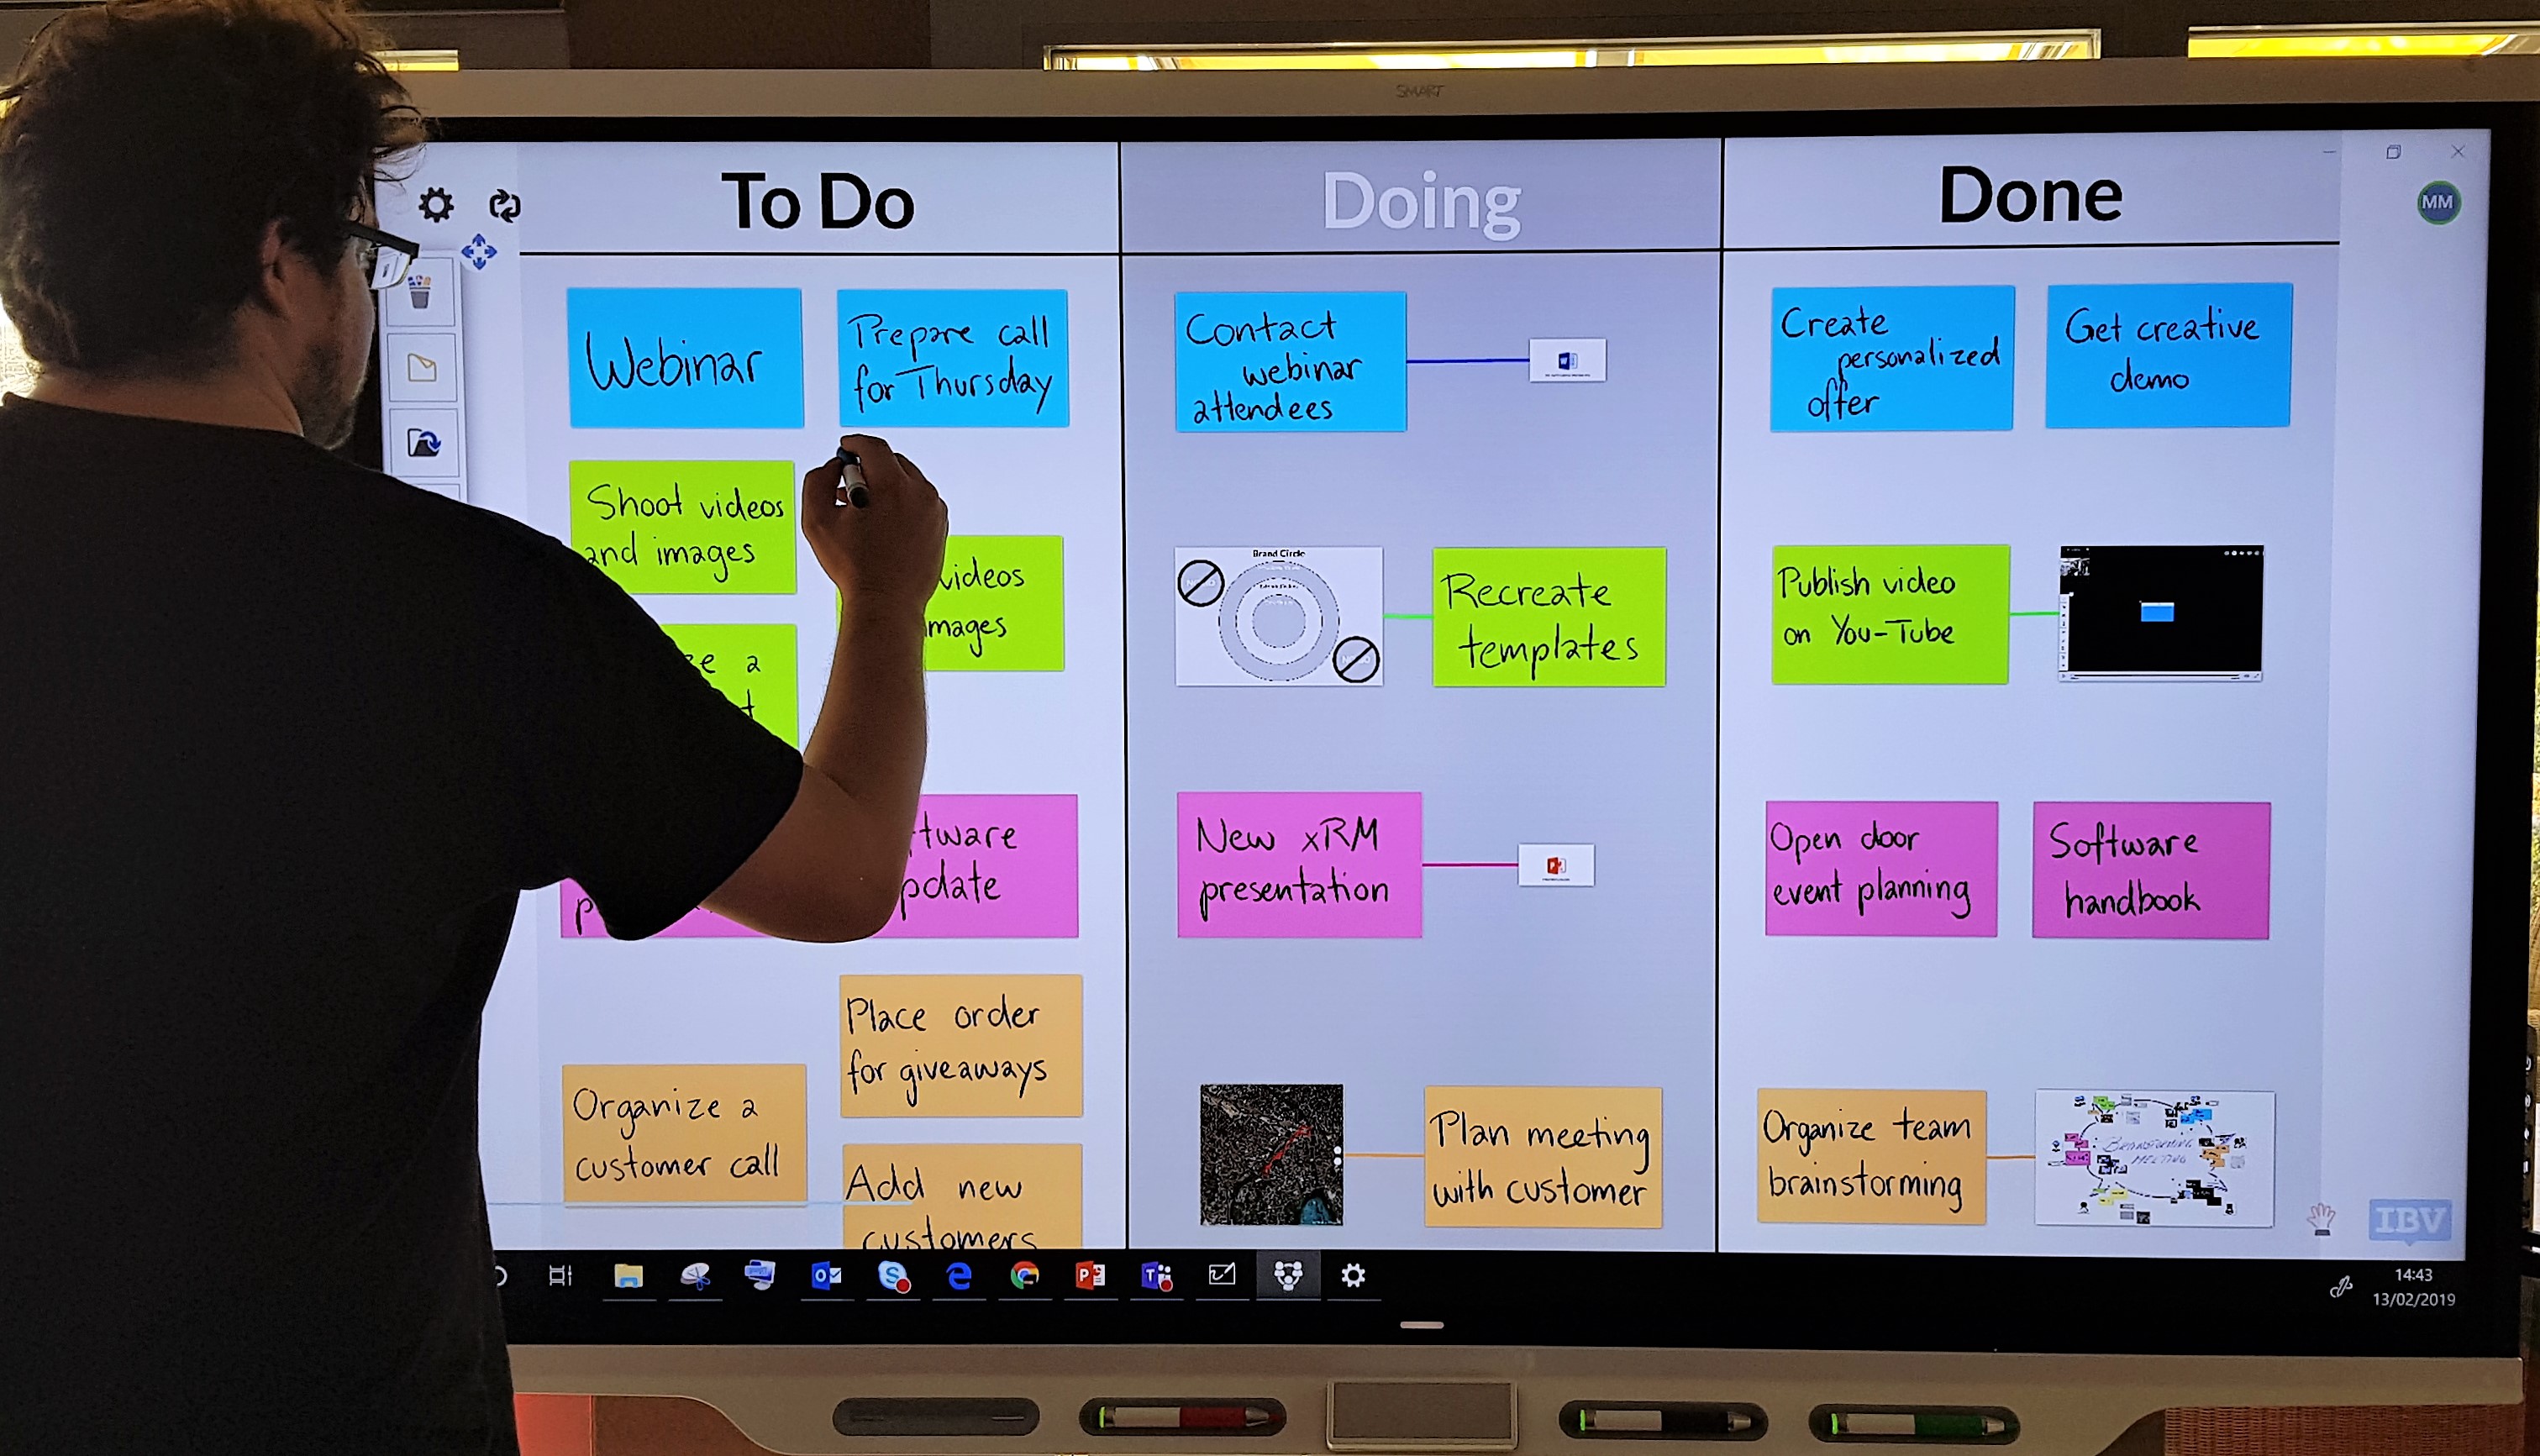 SMART
To Do
Doing
Done
MM
Webinar
Prepare call
for Thursday
Shoot videos
and images
videos
a
Place order
for giveaways
Organize a
customer call
Add new
customers
Contact
webinar
attendees
Brand Circle
Recreate
templates
New xRM
presentation
Plan meeting
with customer
Create
personalized
offer
Get creative
demo
Publish video
on You-Tube
Open door
event planning
Software
handbook
Organize team
brainstorming
BRAINSTORMING
MEETING
IBV
14:43
13/02/2019